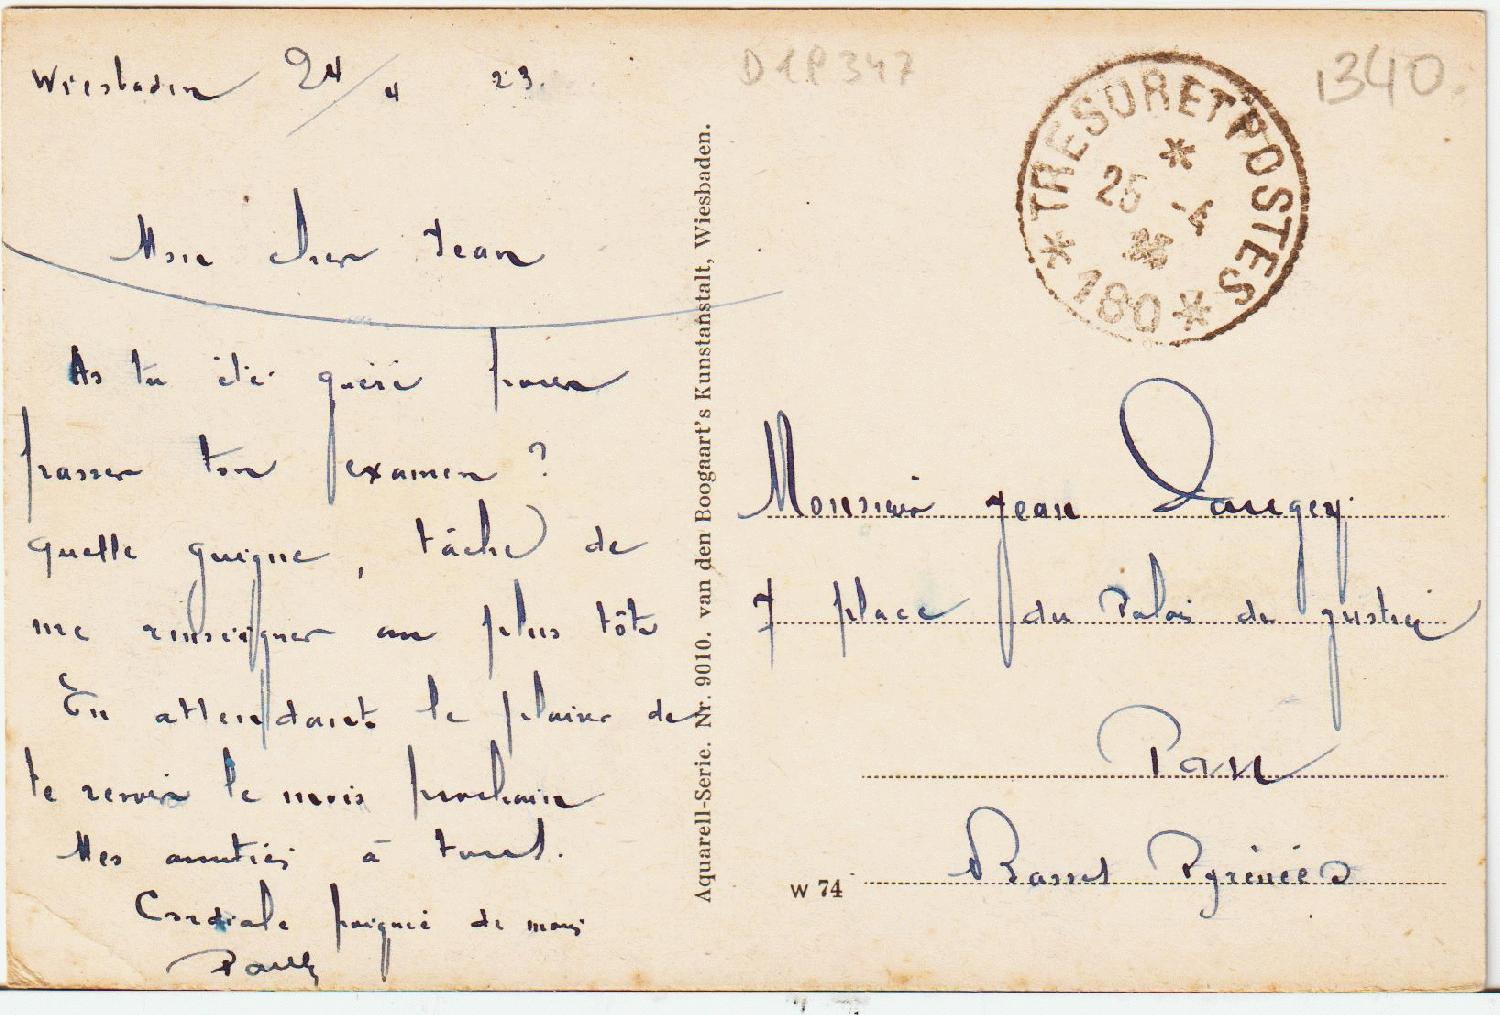 Wiesbaden 24/4 23.
Mon cher Jean
As tu été guéri pour
passer ton examen ?
quelle guigne, tâche de
me renseigner au plus tôt
En attendant le plaisir de
te revoir le mois prochain
Mes amitiés à tous.
Cordiale poignée de main
Aquarell-Serie. Nr. 9010. van den Boogaart's Kunstanstalt, Wiesbaden.
D1P347
1340.
* TRESOR ET POSTES *
25 -4
180
Monsieur Jean
7 place du Palais de justice
Pau
W 74
Basses Pyrénées